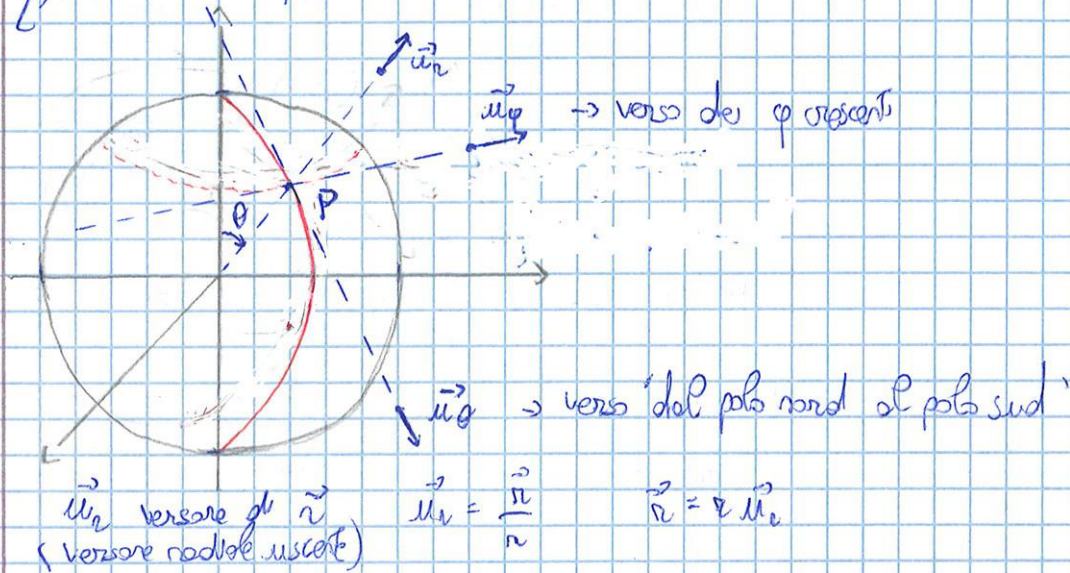 u⃗r
u⃗φ → verso dei φ crescenti
θ
P
u⃗θ → verso "dal polo nord al polo sud"
u⃗r versore di r⃗ u⃗r = r⃗/r r⃗ = r u⃗r
(versore radiale uscente)